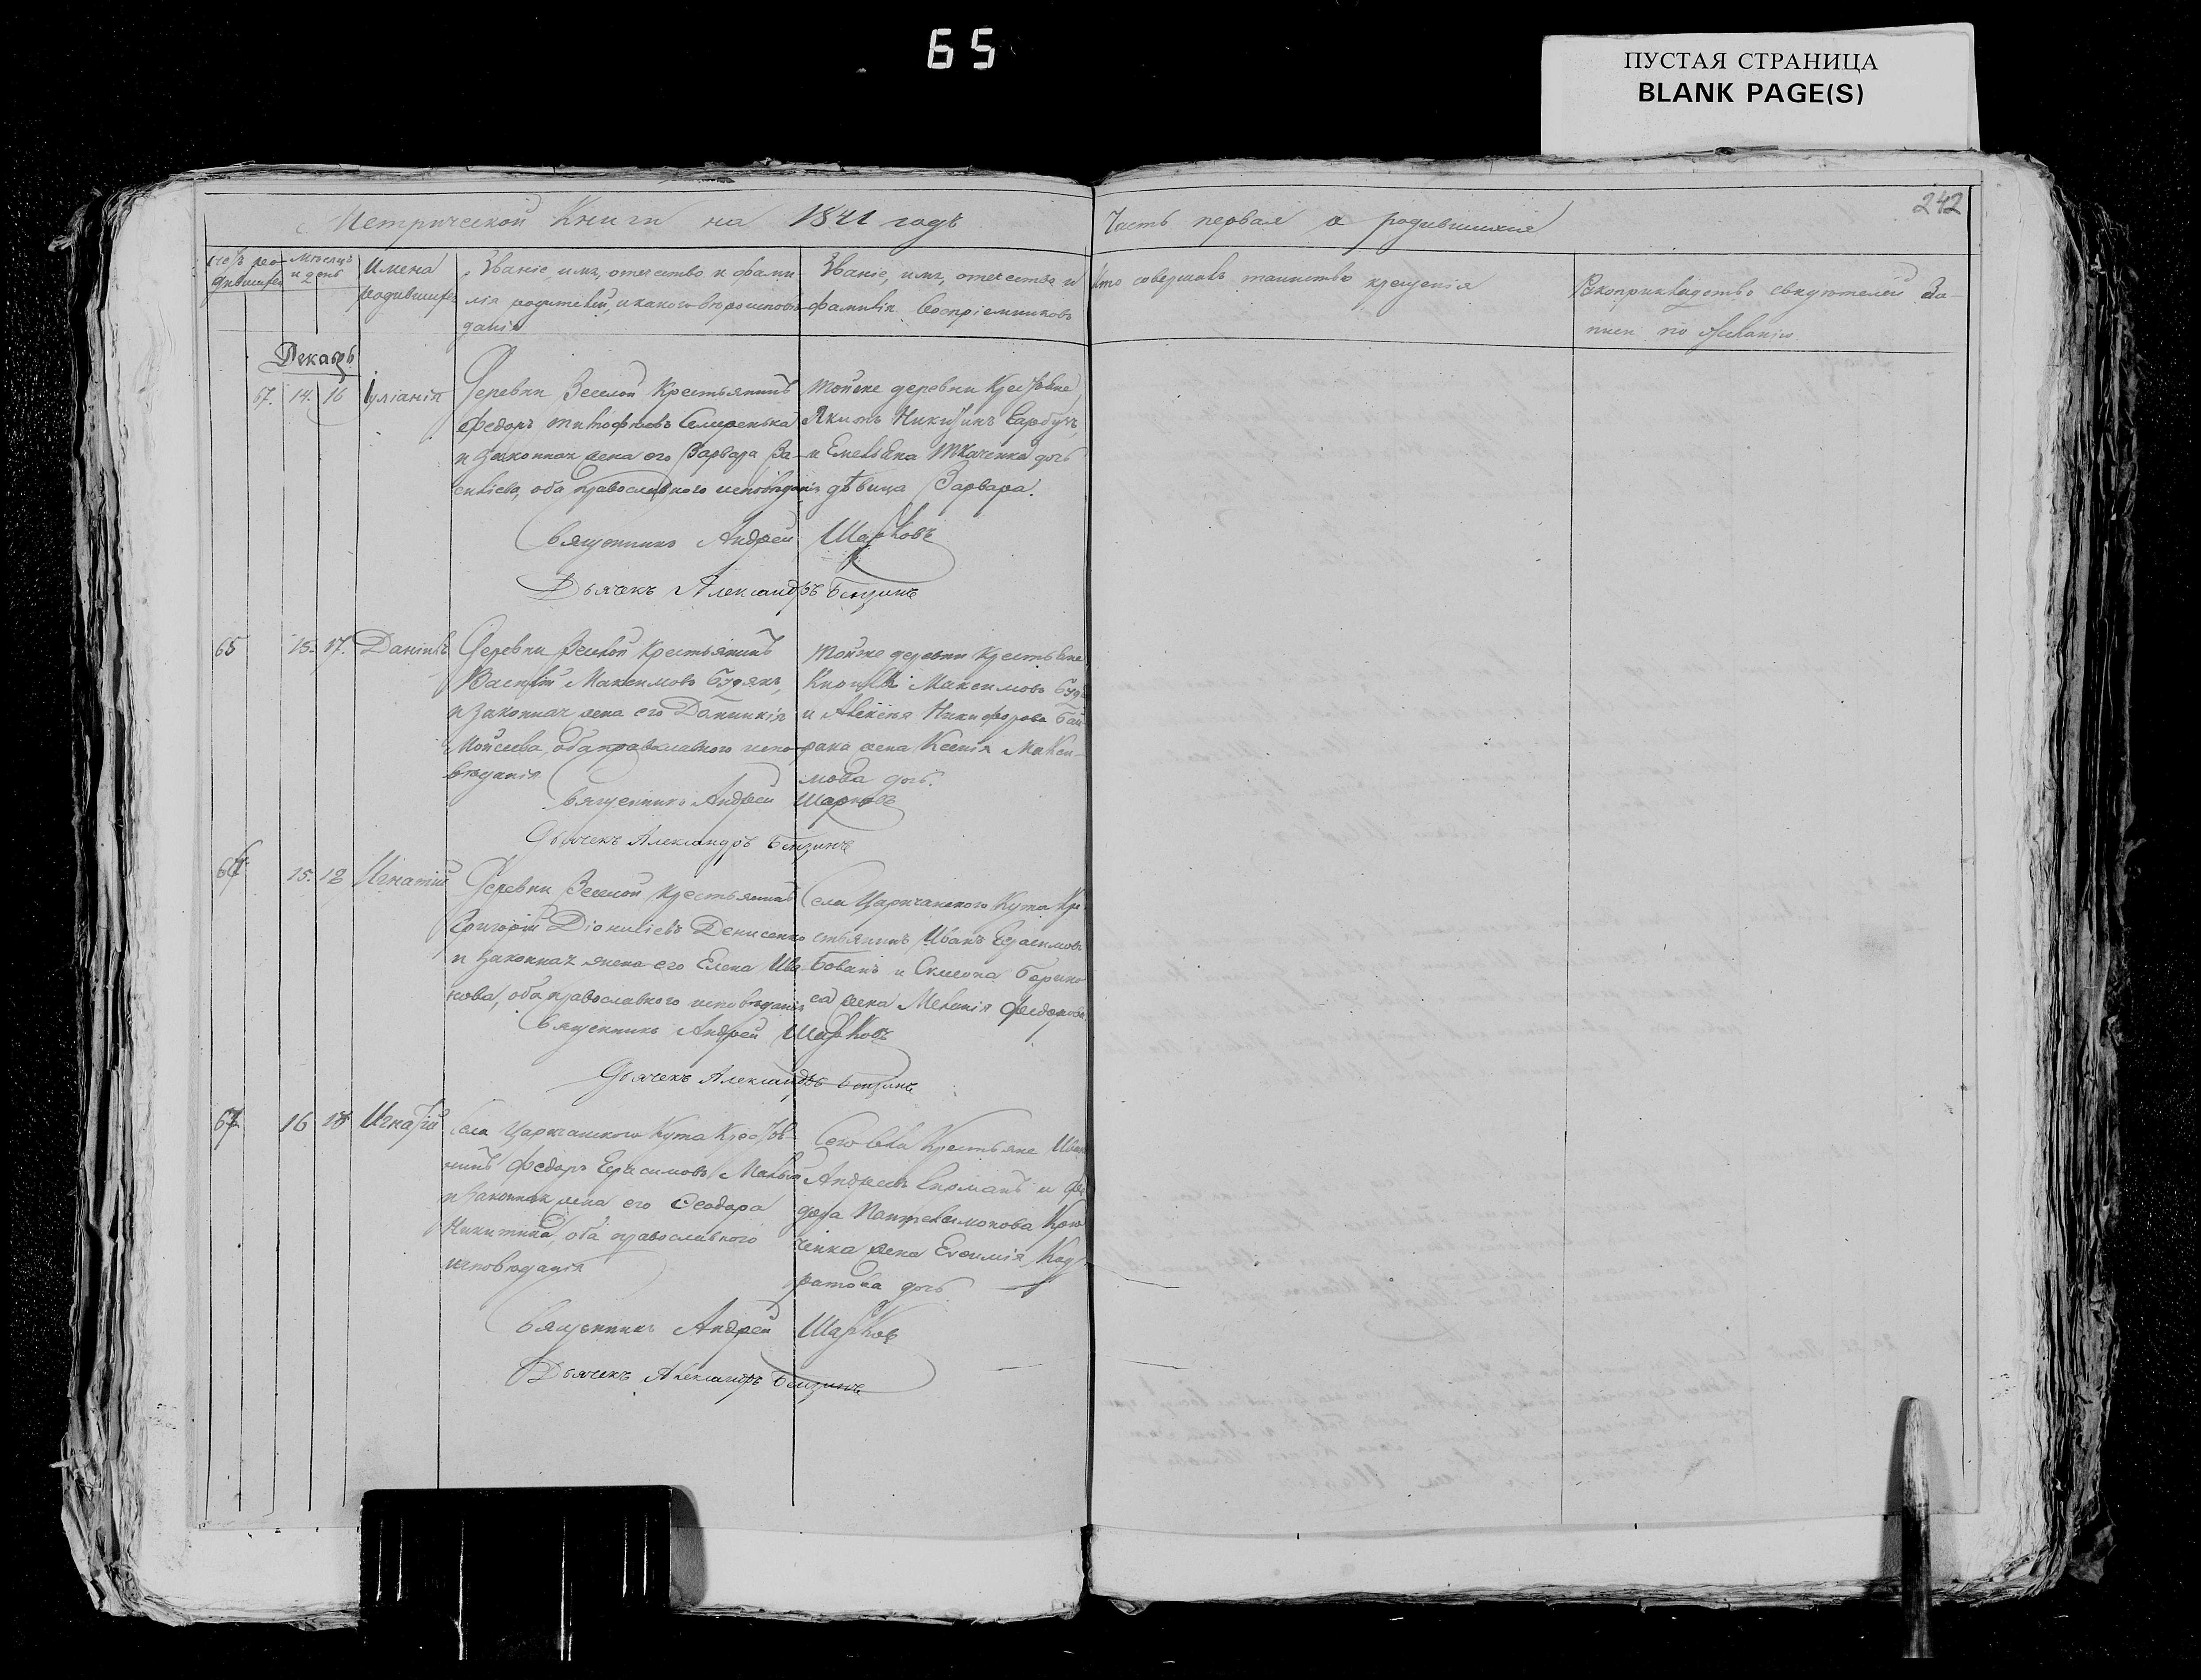 65
ПУСТАЯ СТРАНИЦА
BLANK PAGE(S)
242
Метрической Книги на 1841 годъ
Часть первая о родившихся
Мѣсяцъ и день
Имена родившихся
Званіе, имя, отечество и фами-
лія родителей, и какого вѣроисповѣ-
данія
Званіе, имя, отечество и
фамилія воспріемниковъ
Кто совершалъ таинство крещенія
Рукоприкладство свидѣтелей за-
писи по желанію
Декабрь
67. 14. 16 Іуліанія
Деревни Веселой крестьянинъ
Федоръ Тимофѣевъ Семеренька
и законная жена его Варвара Ва-
силіева, оба православнаго исповѣданія
Тойже деревни Крестьяне
Якимъ Никитинъ Гарбузъ,
и Емельяна Ткаченка дочь
дѣвица Варвара.
Священникъ Андрей Шарковъ
Дьячекъ Александръ
65 15. 17. Даніилъ
Деревни Веселой крестьянинъ
Василій Максимовъ Будякъ,
и законная жена его Домникія
Мойсеева, оба православнаго испо-
вѣданія
Тойже деревни Крестьяне
Максимовъ
и Алексѣя Никифорова
жена Ксенія Макси-
мова дочь.
Священникъ Андрей Шарковъ
Дьячекъ Александръ
66 15. 18 Игнатій
Деревни Веселой крестьянинъ
Григорій Діонисіевъ Денисенко
и законная жена его Елена Ива-
нова, оба православнаго исповѣданія
Села Царичанского Кута Кре-
стьянинъ Иванъ Герасимовъ
Бованъ и Симеона
жена Меланія Федорова
Священникъ Андрей Шарковъ
Дьячекъ Александръ
67 16 18 Игнатій
Села Царичанского Кута Крестья-
нинъ Федоръ Герасимовъ Малый
и законная жена его Феодора
Никитина, оба православнаго
исповѣданія
Сего села Крестьяне Иванъ
Андреевъ и Фе-
дора Пантелеимонова
жена Евфимія Код-
ратова дочь
Священникъ Андрей Шарковъ
Дьячекъ Александръ